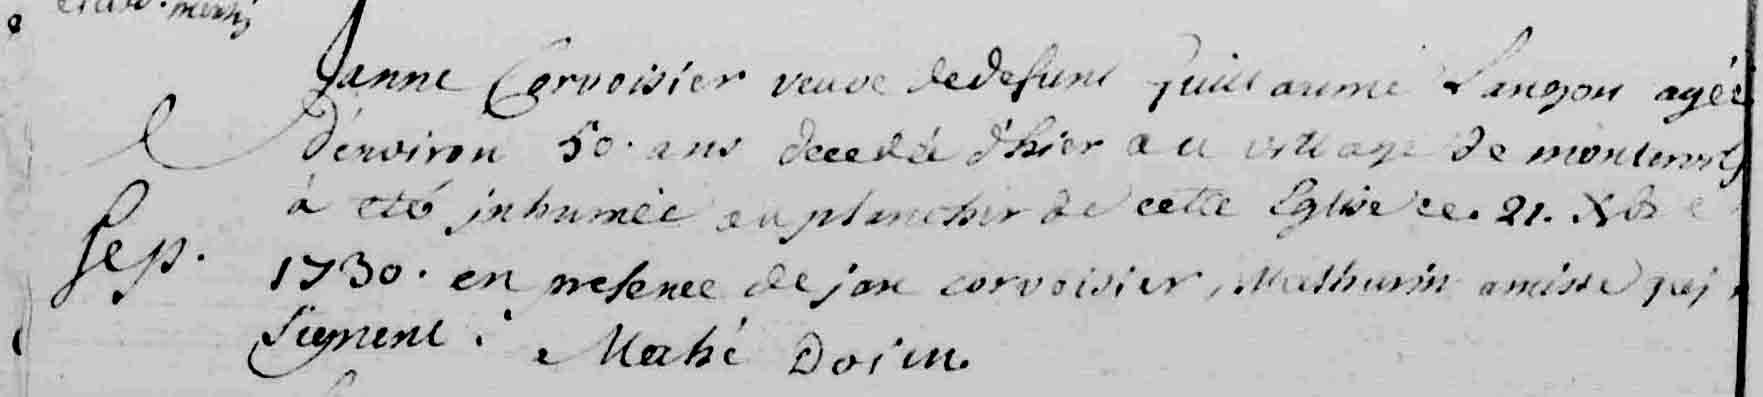 Janne Corvoisier veuve de defunt Guillaume Langou agée
d'environ 50. ans decedée d'hier au village de
à eté inhumée au plancher de cette Eglise ce. 21. Xbre
Sep.
1730. en presence de jan corvoisier, Mathurin amisse qui
signent. Mahé Doien.